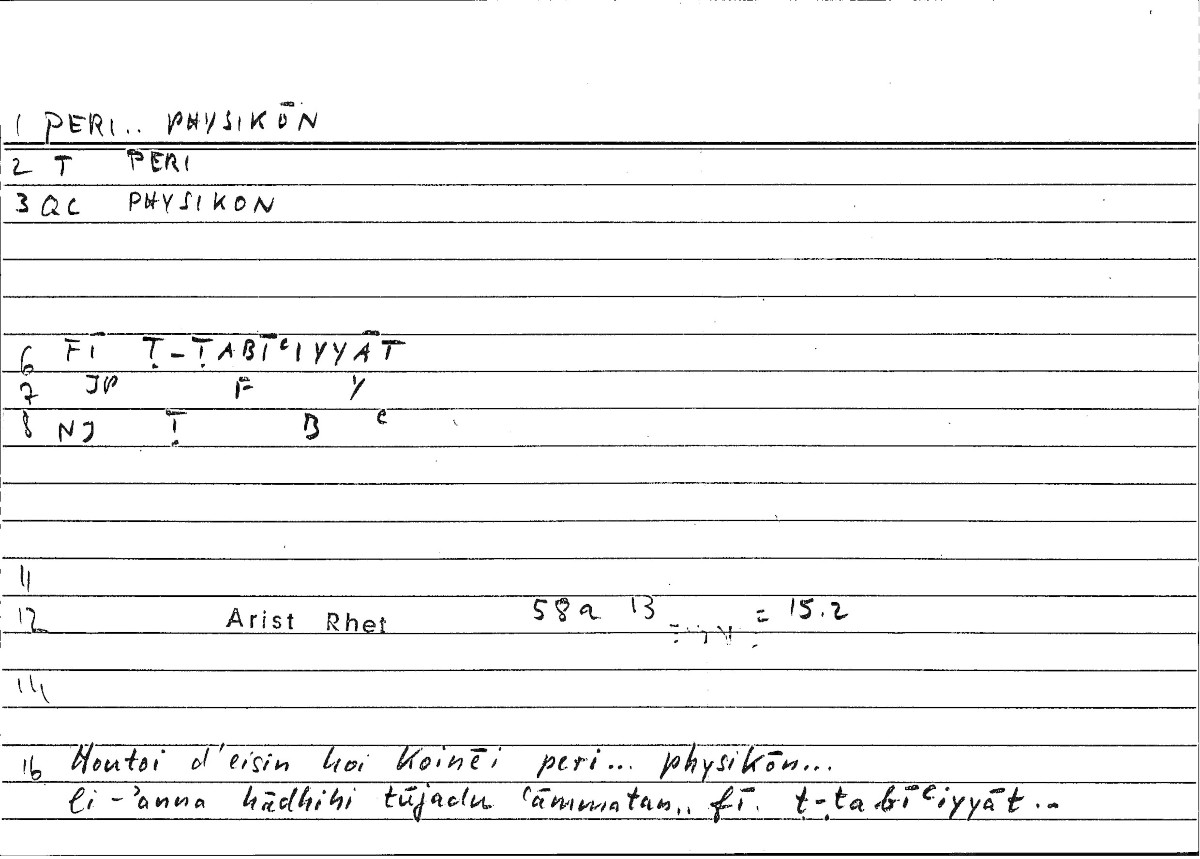 1 PERI.. PHYSIKŌN
2 T PERI
3 QC PHYSIKON
6 FĪ Ṭ-ṬABĪᶜIYYĀT
7 JP F Y
8 NJ Ṭ B ᶜ
11
12 Arist Rhet 58a 13 = 15.2
14
16 Houtoi d'eisin hoi Koinēi peri... physikōn...
li-'anna hādhihi tūjadu 'āmmatan.. fī. ṭ-ṭabīᶜiyyāt..